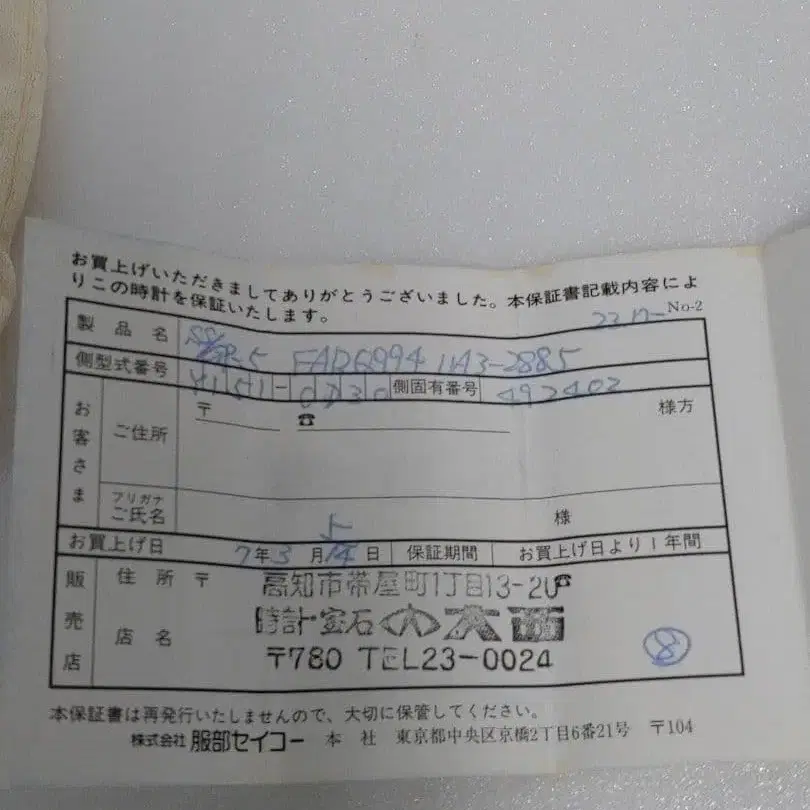 お買上げいただきましてありがとうございました。本保証書記載内容によ
りこの時計を保証いたします。
No-2
製品名
側型式番号
側固有番号 492402
お客さま
ご住所 〒 ☎ 様方
フリガナ
ご氏名 様
お買上げ日 7年3月14日 保証期間 お買上げ日より1年間
販売店
住所 〒 高知市帯屋町1丁目13-20☎
店名 時計・宝石 大西
〒780 TEL23-0024
8
本保証書は再発行いたしませんので、大切に保管してください。
株式会社 服部セイコー 本社 東京都中央区京橋2丁目6番21号 〒104